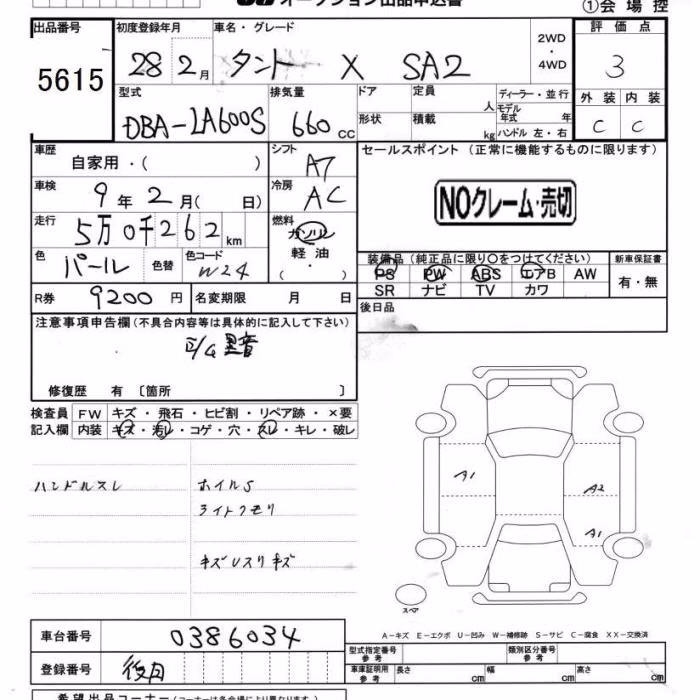 オークション出品申込書
①会場控
出品番号 初度登録年月 車名・グレード 2WD ・ 4WD 評価点
5615 28 2月 タント X SA2 3
型式 排気量 ドア 定員 人 ディーラー・並行
外装 内装
DBA-LA600S 660cc 形状 積載 kg モデル年式 年 ハンドル 左・右
C C
車歴 シフト セールスポイント (正常に機能するものに限ります)
自家用・( ) A7
車検 9年2月( 日) 冷房 AC
NOクレーム・売切
走行 5万0千262km 燃料 ガソリン
軽油
・
( )
色 パール 色替 色コード W24
装備品 (純正品に限り○をつけてください) 新車保証書
PS PW ABS エアB AW 有・無
SR ナビ TV カワ
R券 9200円 名変期限 月 日 後日品
注意事項申告欄(不具合内容等は具体的に記入して下さい)
E/G異音
修復歴 有〔箇所 〕
検査員 FW キズ・飛石・ヒビ割・リペア跡・×要
記入欄 内装 キズ・汚レ・コゲ・穴・スレ・キレ・破レ
ハンドルスレ ホイルS
ライトクモリ
キズUスリキズ
A1 A2
A1
スペア
A-キズ E-エクボ U-凹み W-補修跡 S-サビ C-腐食 XX-交換済
車台番号 0386034
型式指定番号 参考 類別区分番号 参考
登録番号 後日 車庫証明用 参考 長さ cm 幅 cm 高さ cm
希望出品コーナー(コーナーは各会場により異なります)